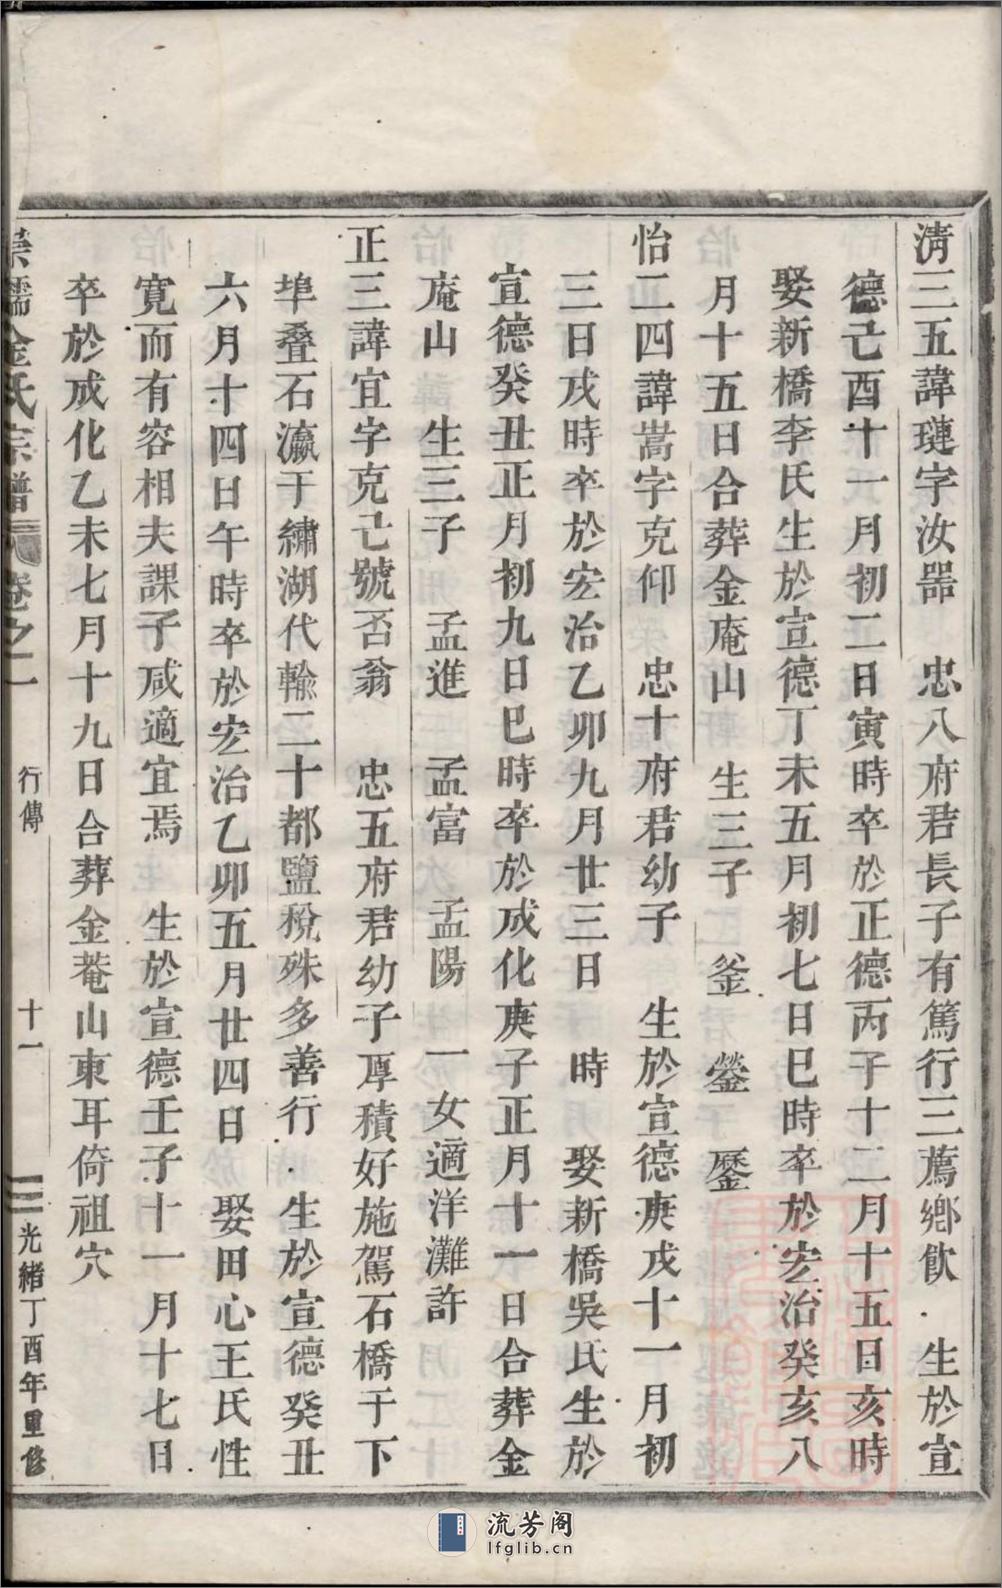 清三五諱璉字汝器　忠八府君長子有篤行三薦鄉飲．生於宣
德己酉十一月初二日寅時卒於正德丙子十二月十五日亥時
娶新橋李氏生於宣德丁未五月初七日巳時卒於宏治癸亥八
月十五日合葬金庵山　生三子　釜　鎣　㻺
怡二四諱嵩字克仰　忠十府君幼子　生於宣德庚戌十一月初
三日戌時卒於宏治乙卯九月廿三日　時　娶新橋吳氏生於
宣德癸丑正月初九日巳時卒於成化庚子正月十一日合葬金
庵山　生三子　孟進　孟富　孟陽　一女適洋灘許
正三諱宜字克己號否翁　忠五府君幼子厚積好施駕石橋于下
埠叠石瀛于繡湖代輸二十都鹽稅殊多善行．生於宣德癸丑
六月十四日午時卒於宏治乙卯五月廿四日　娶田心王氏性
寬而有容相夫課子咸適宜焉　生於宣德壬子十一月十七日
卒於成化乙未七月十九日合葬金菴山東耳倚祖穴
崇儒金氏宗譜　卷之一　行傳　十一　光緒丁酉年重修
流芳阁
lfglib.cn